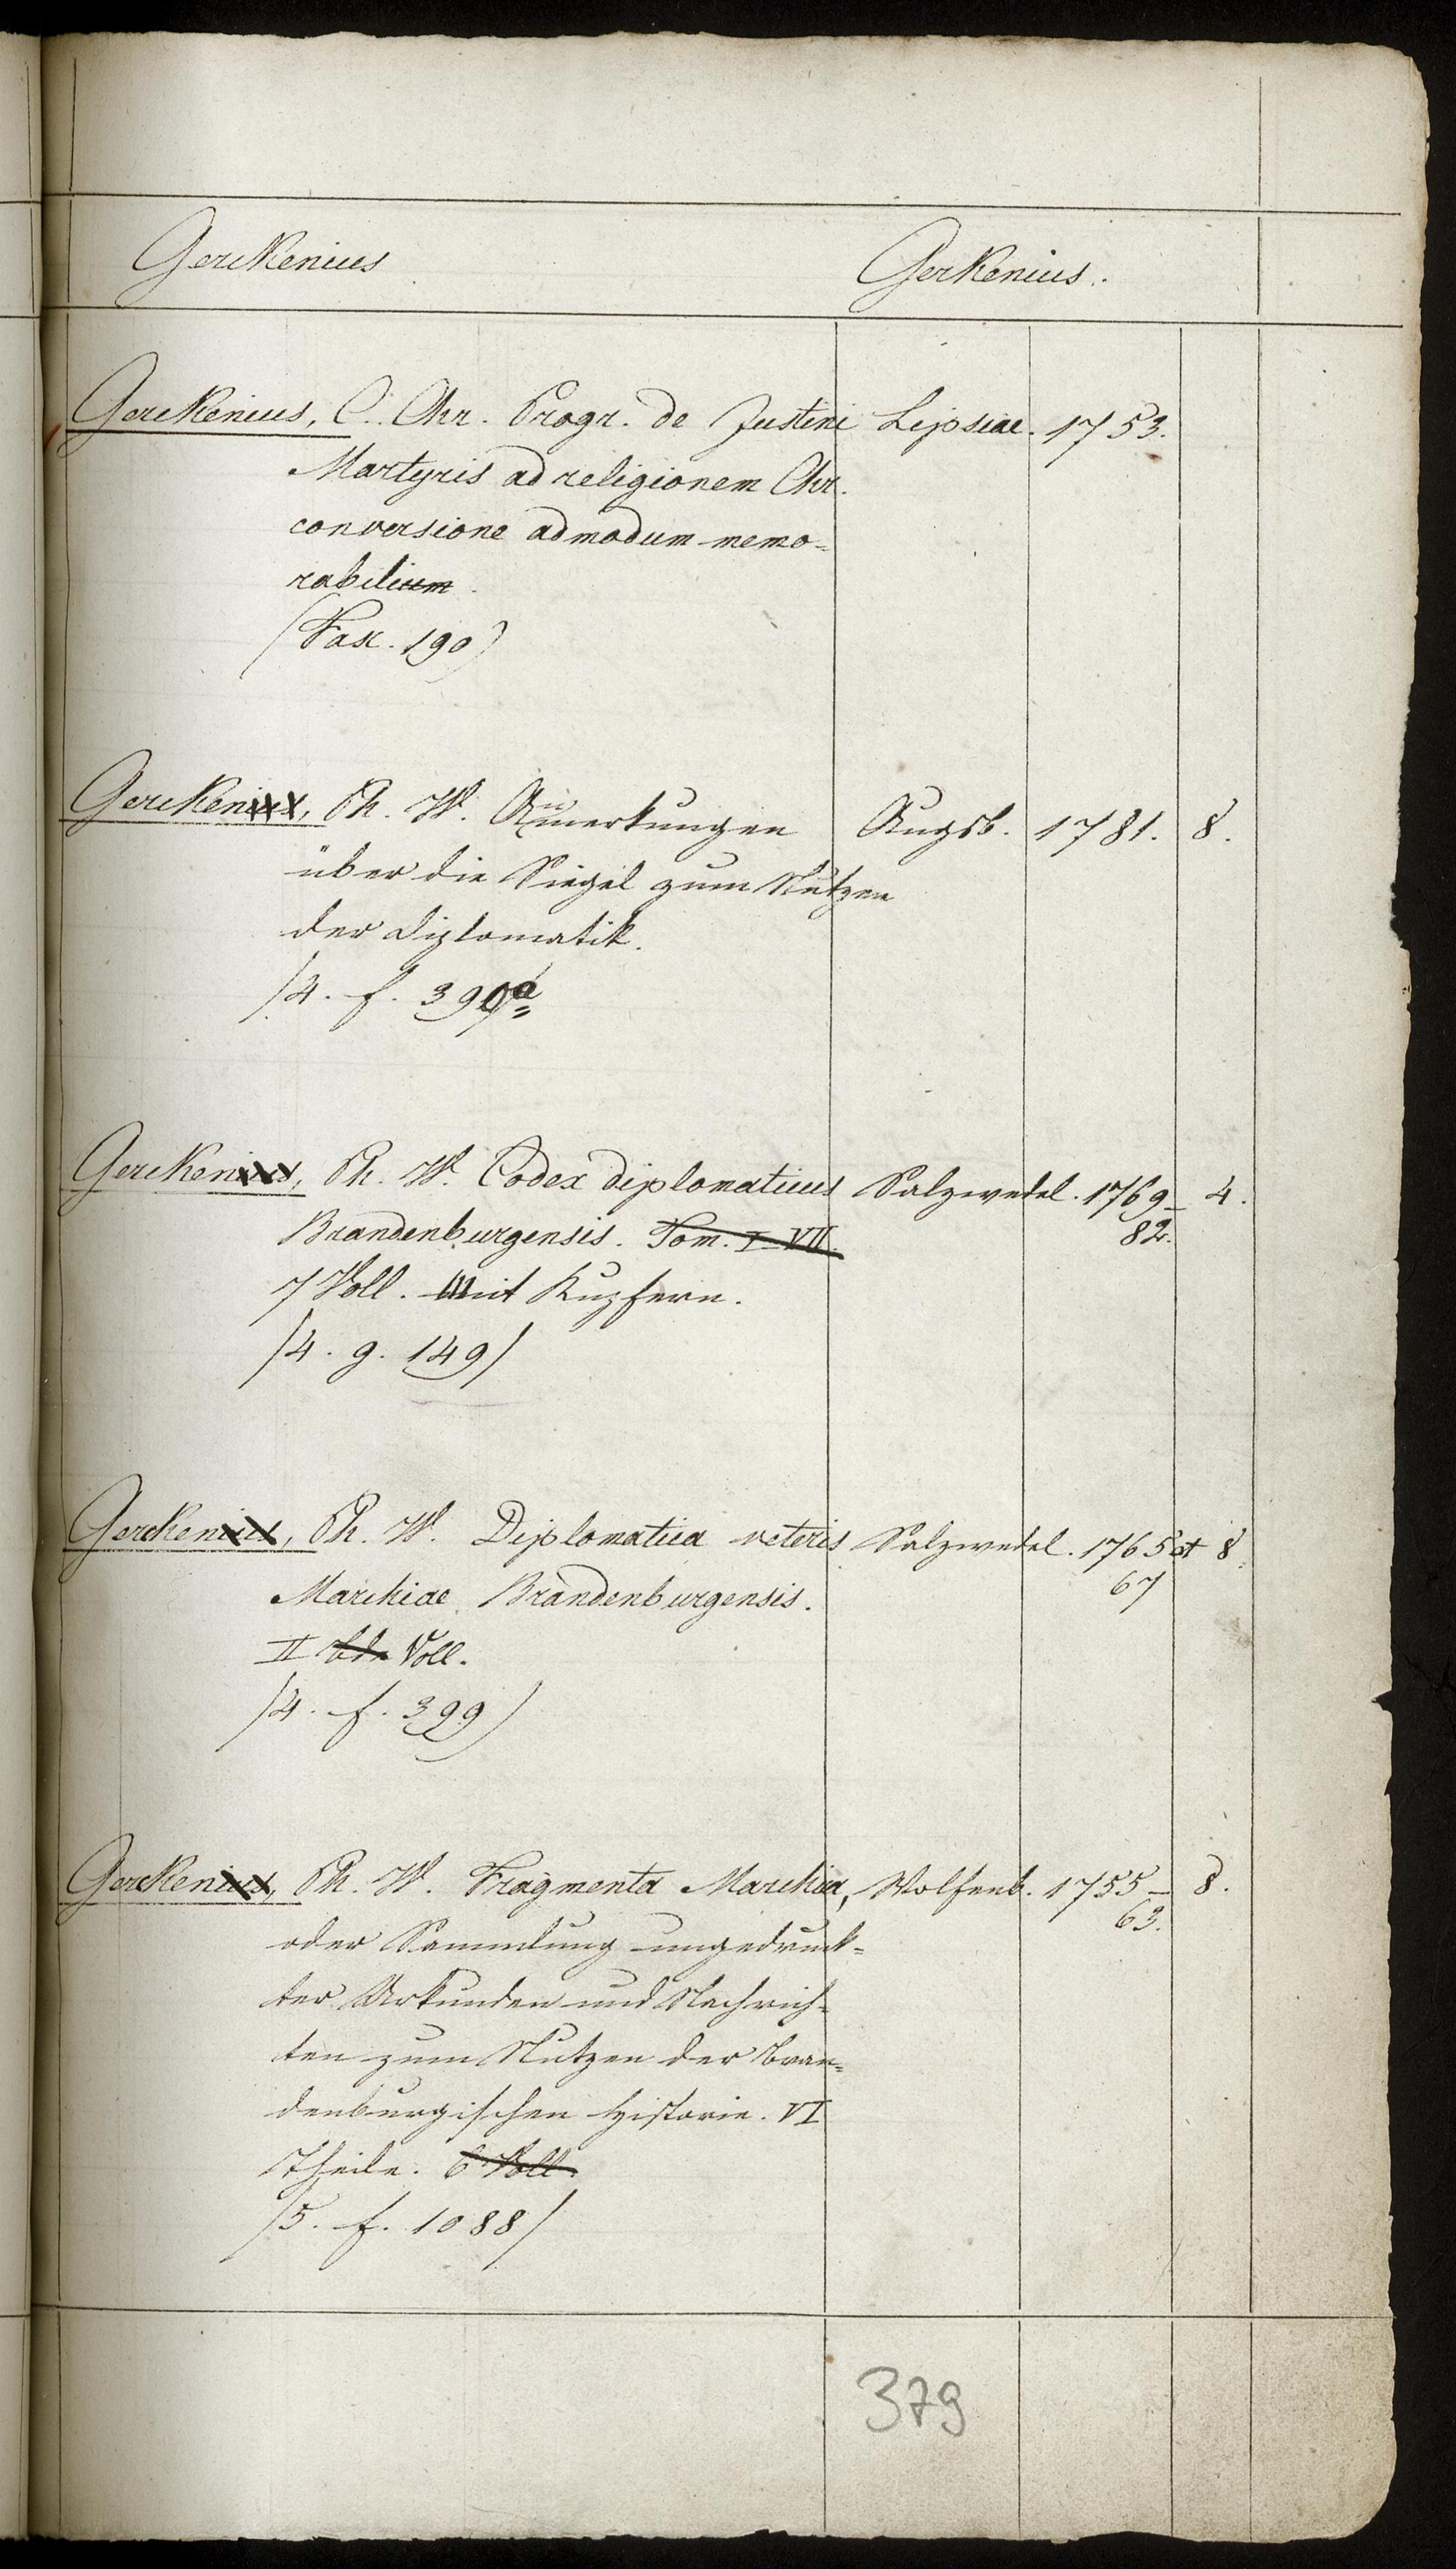 Gerckenius
Gerkenius.
Gerckenius, C. Chr. Progr. de Justini Lipsiae. 1753.
Martyris ad religionem Chr.
conversione admodum memo-
rabilium.
(Fasc. 190)
Gerckenius, Ph. W. Anmerkungen Augsb. 1781. 8.
über die Siegel zum Nutzen
der Diplomatik.
/4. f. 399a
Gerckenius, Ph. W. Codex diplomaticus Salzwedel. 1769- 4.
82.
Brandenburgensis. Tom. I-VII.
7 Voll. mit Kupfern.
/4. g. 149/
Gerckenius, Ph. W. Diplomatica veteris Salzwedel. 1765 et 8
67
Marchiae Brandenburgensis.
II bde Voll.
/4. f. 399)
Gerckenius, Ph. W. Fragmenta Marchica, Wolfenb. 1755- 8.
63.
oder Sammlung ungedruck-
ter Urkunden und Nachrich-
ten zum Nutzen der Bran-
denburgischen Historie. VI
Theile. 6 Voll.
/5. f. 1088/
379